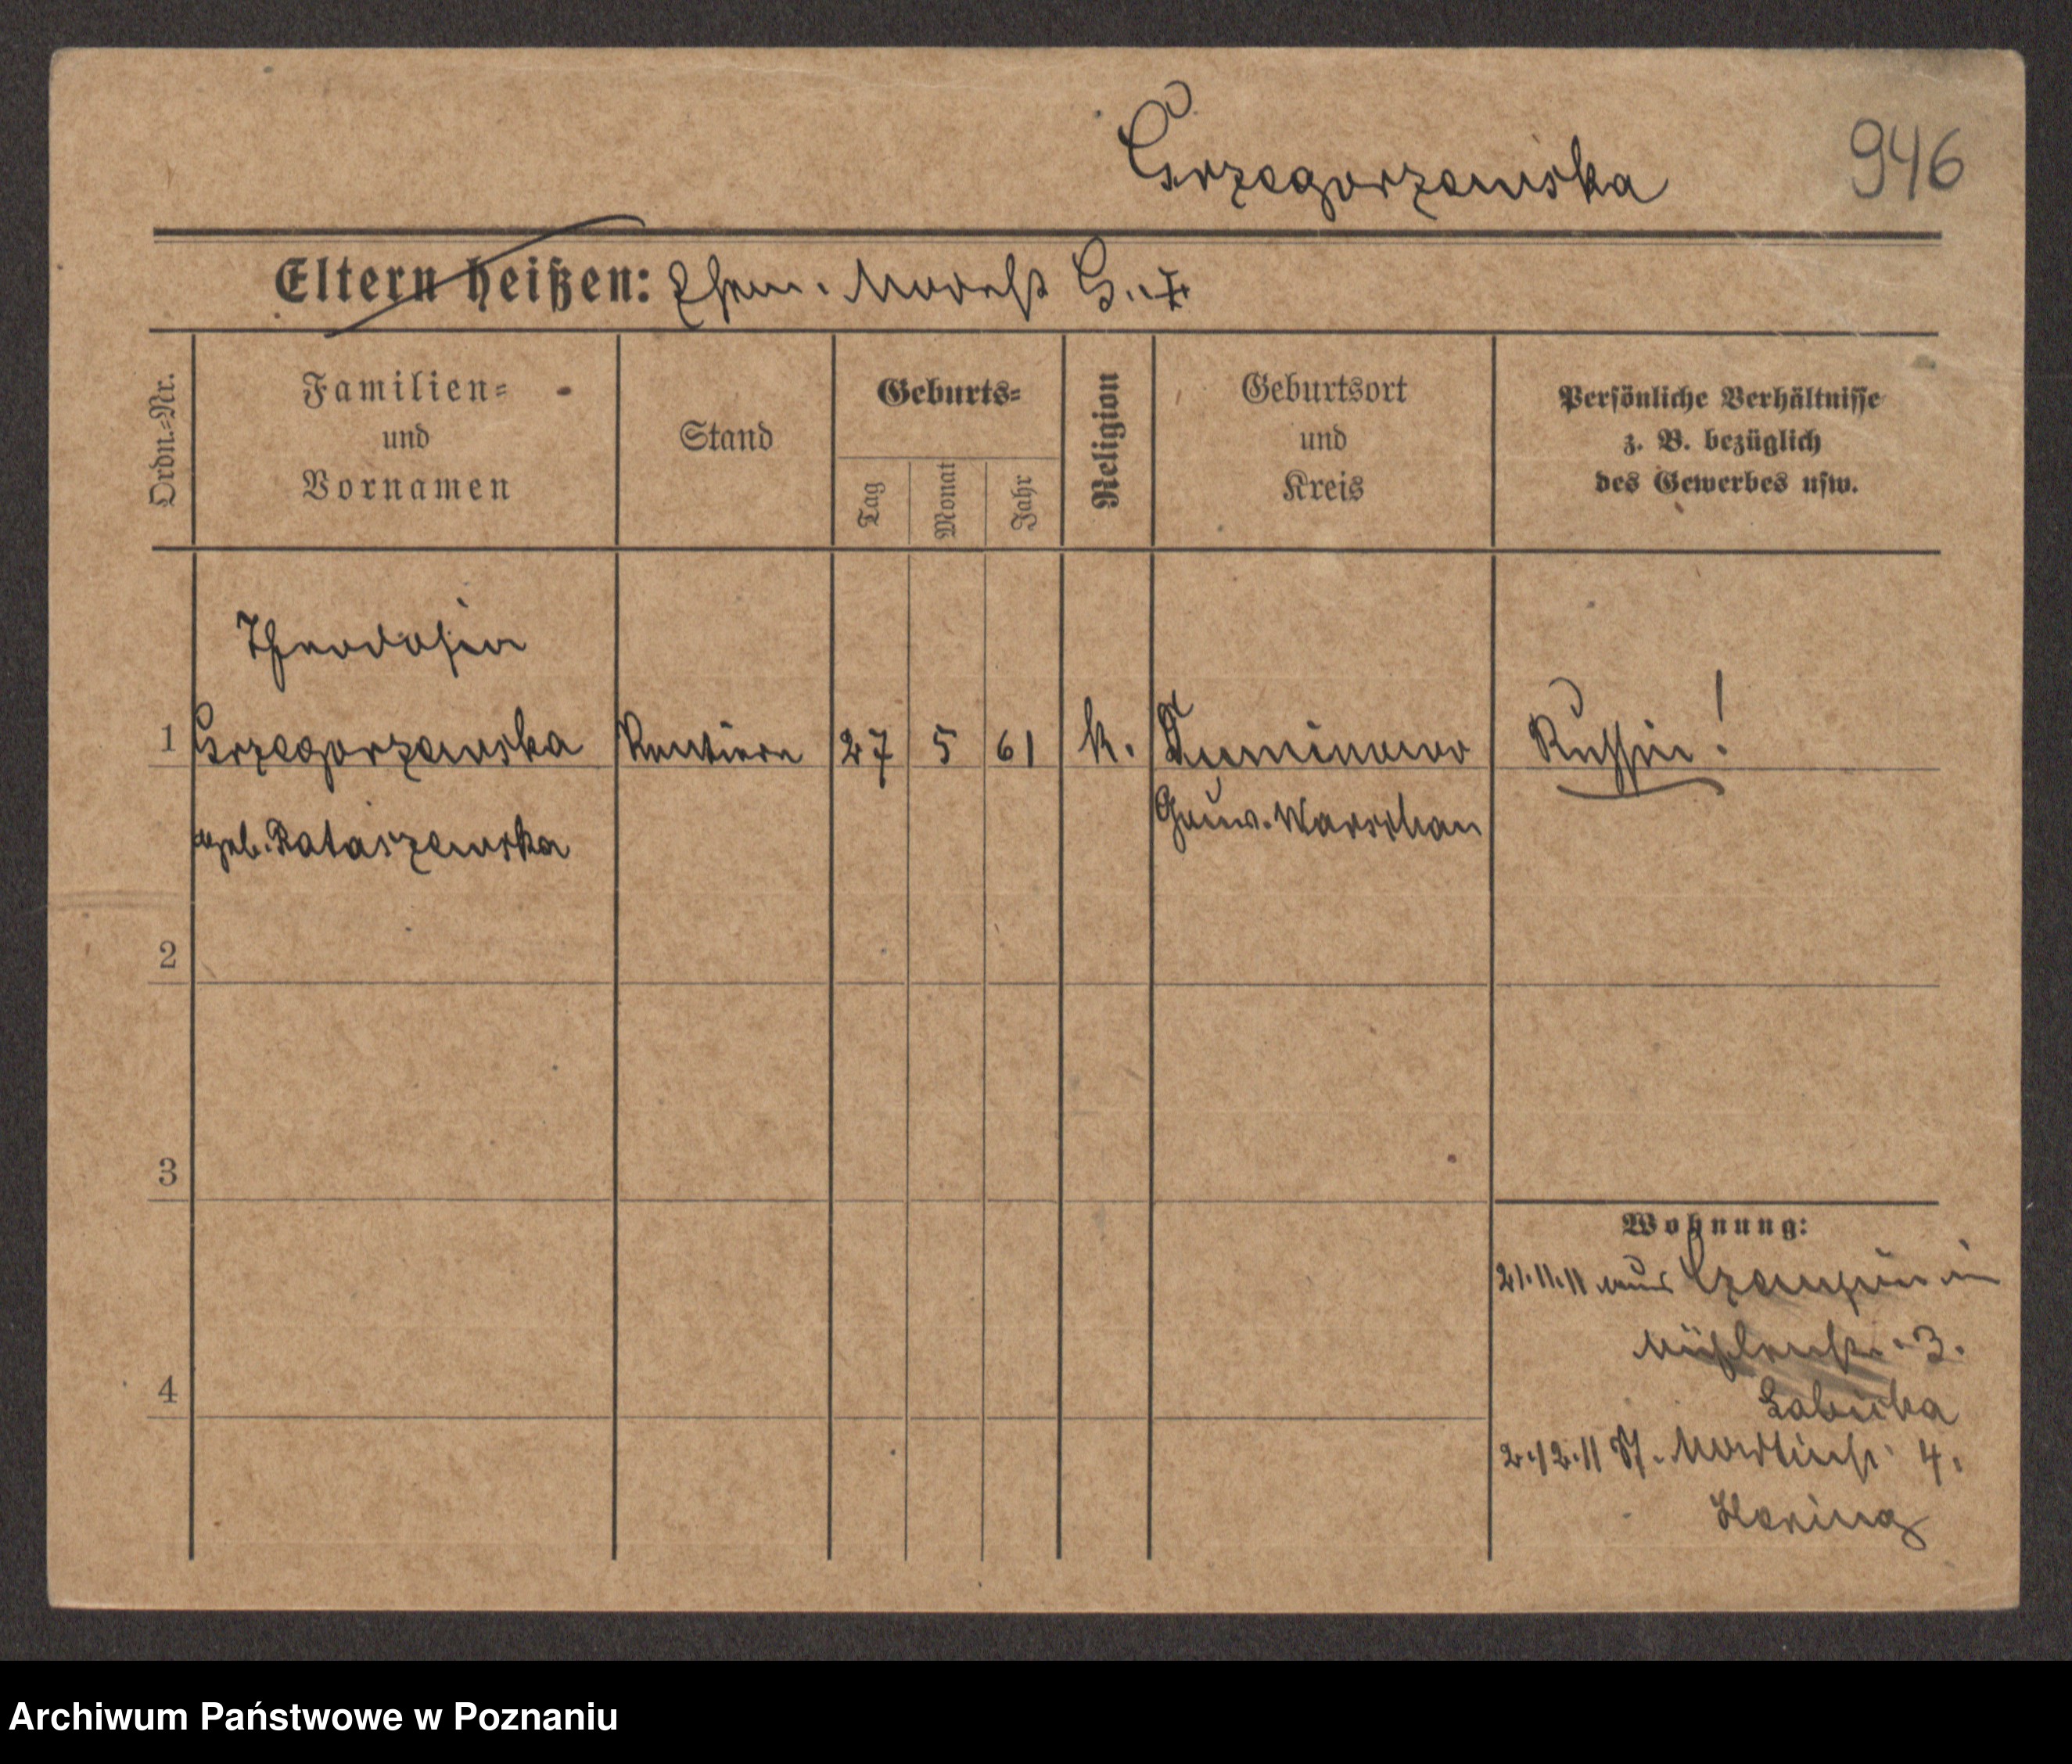 Grzegorzewska 946
Eltern heißen: Ehem. Modest G. ‡
Ordn.-Nr.
Familien-
und
Vornamen
Stand
Geburts-
Tag
Monat
Jahr
Religion
Geburtsort
und
Kreis
Persönliche Verhältnisse
z. B. bezüglich
des Gewerbes usw.
Theodosia
1 Grzegorzewska Rentiere 27 5 61 k. Russin!
geb. Rataszewska Gouv. Warschau
2
3
4
Wohnung:
21.11.11 aus Czempin in
Mühlenstr. 3.
2.12.11 St. Martinstr. 4.
Haring
Archiwum Państwowe w Poznaniu